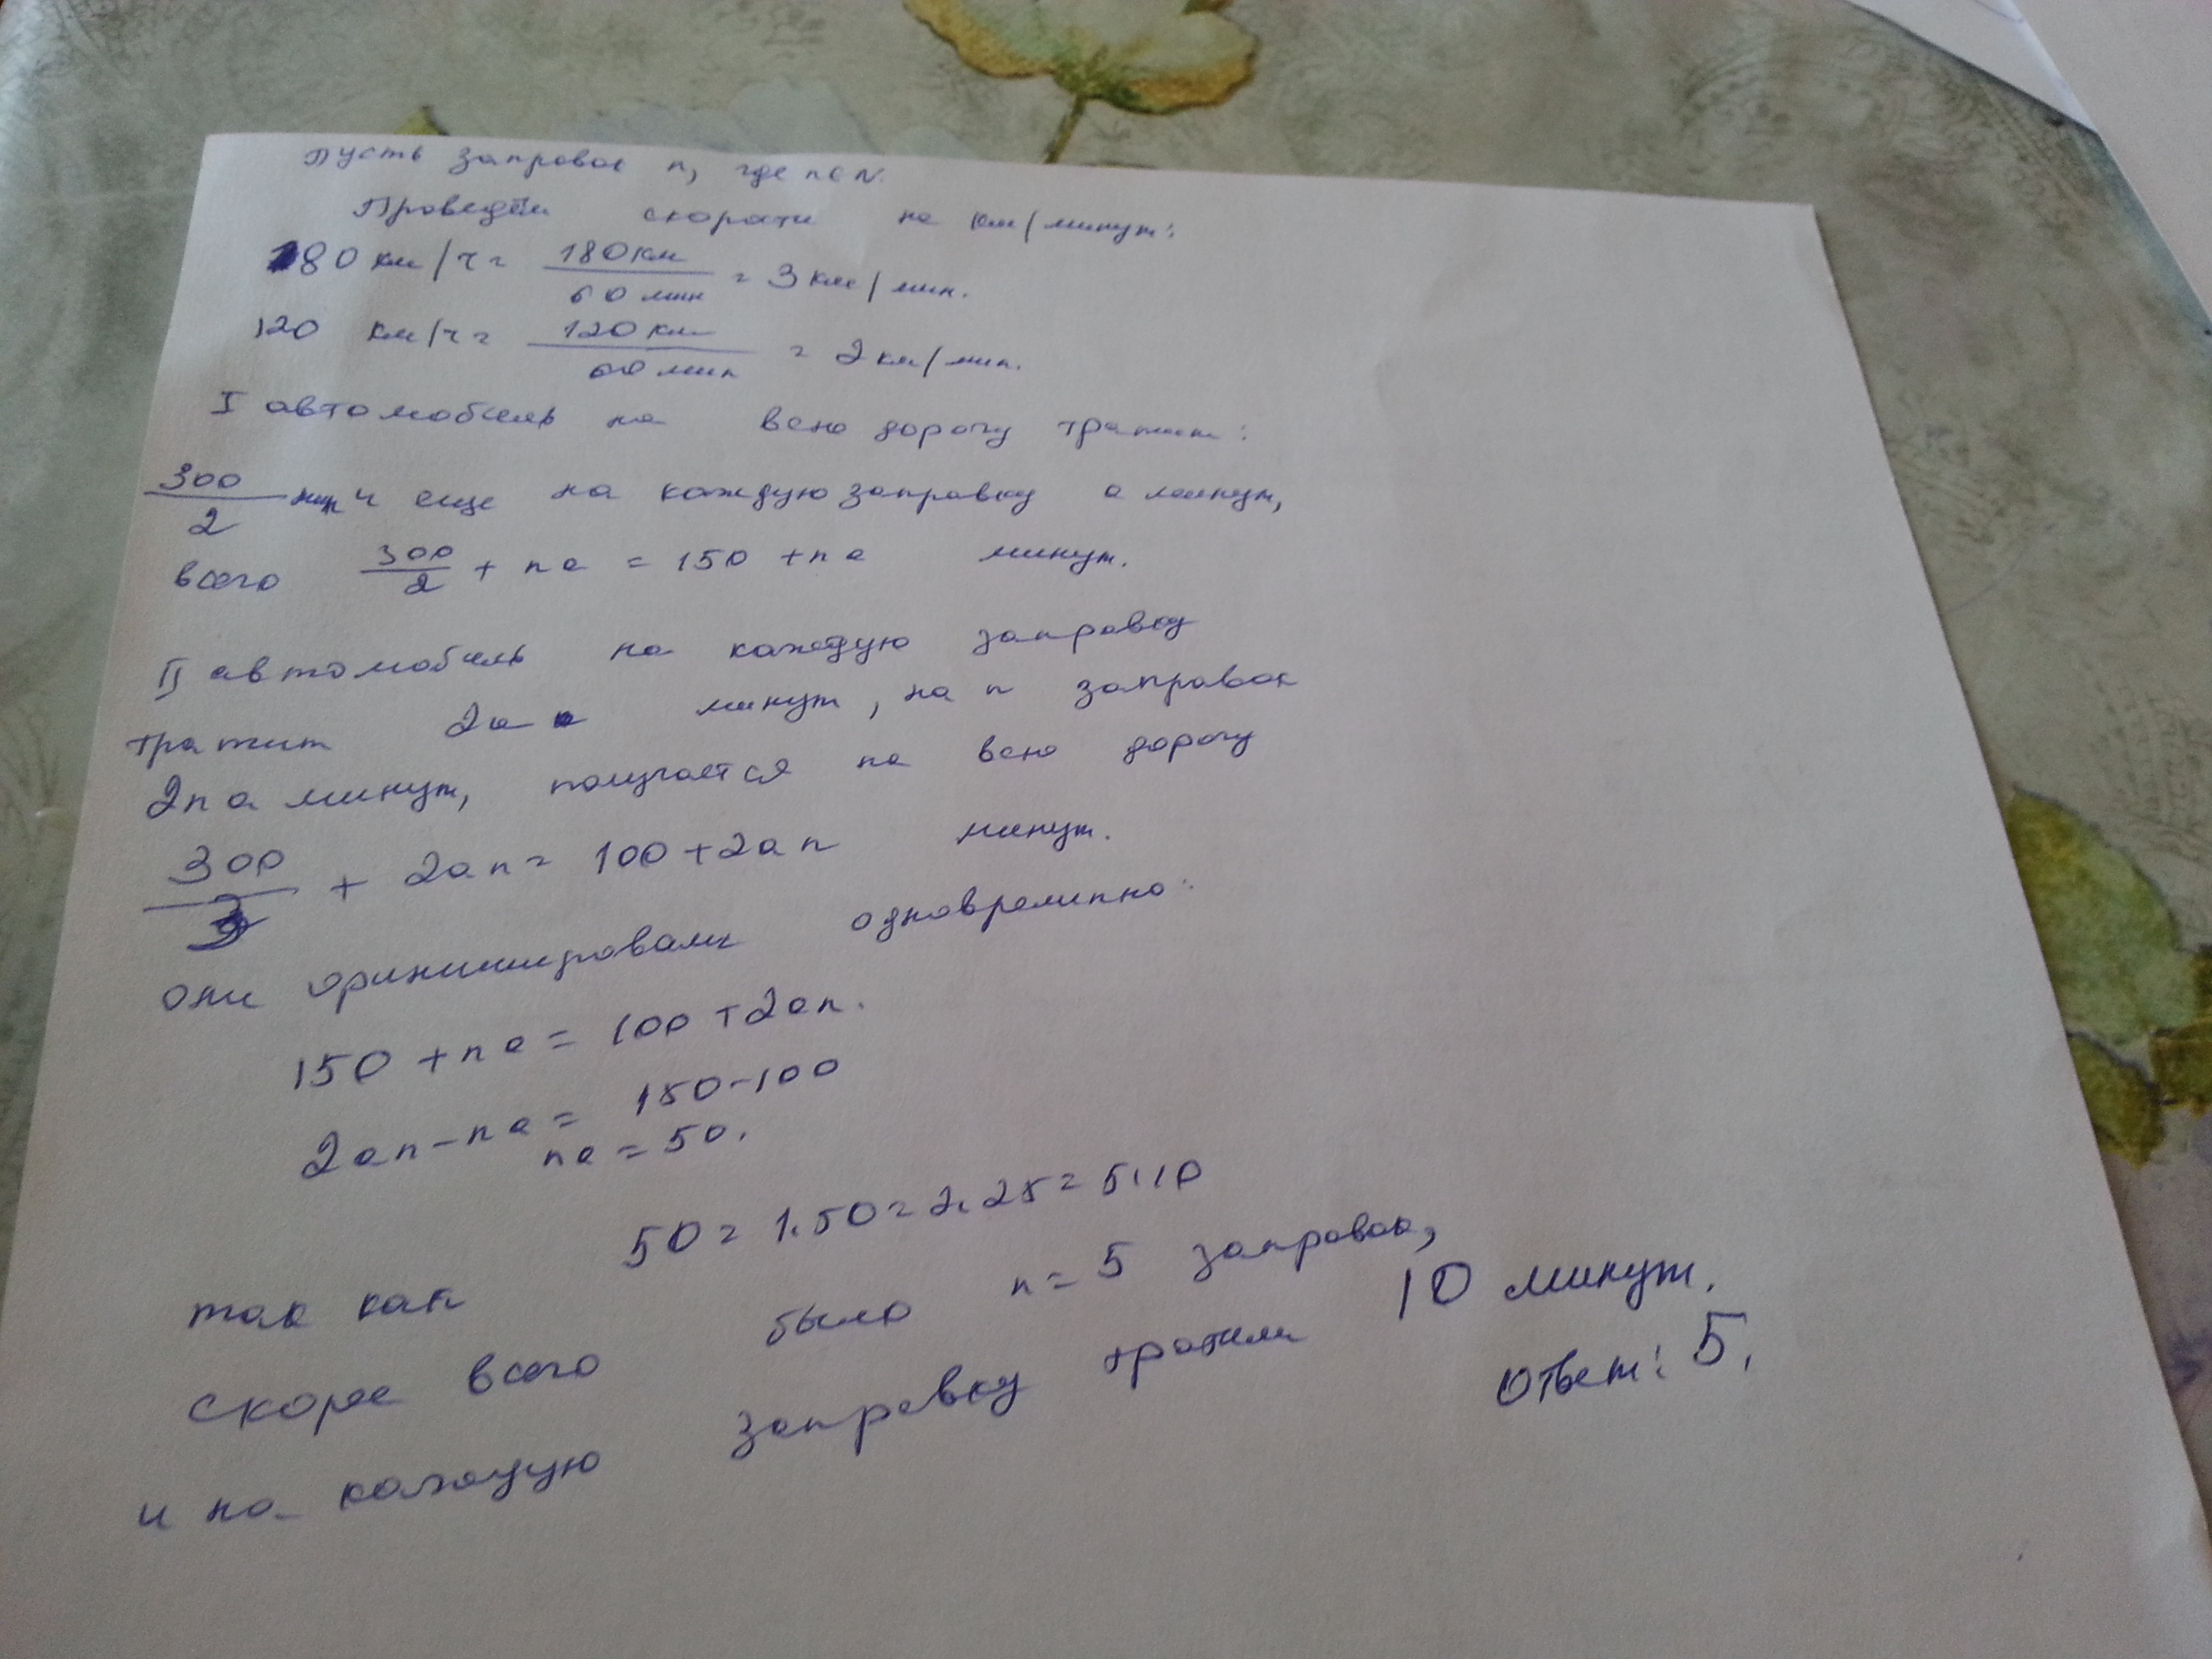 Пусть заправок n, где n∈N.
Проведём скорости на км/минут:
180 км/ч = 180км/60 мин = 3 км/мин.
120 км/ч = 120 км/60 мин = 2 км/мин.
I автомобиль на всю дорогу тратит:
300/2 мин и еще на каждую заправку a минут,
всего 300/2 + na = 150 + na минут.
II автомобиль на каждую заправку
тратит 2a минут, на n заправок
2na минут, получается на всю дорогу
300/3 + 2an = 100 + 2an минут.
они финишировали одновременно:
150 + na = 100 + 2an.
2an - na = 150 - 100
na = 50.
так как 50 = 1·50 = 2·25 = 5·10
скорее всего было n = 5 заправок,
и на каждую заправку тратили 10 минут.
Ответ: 5.